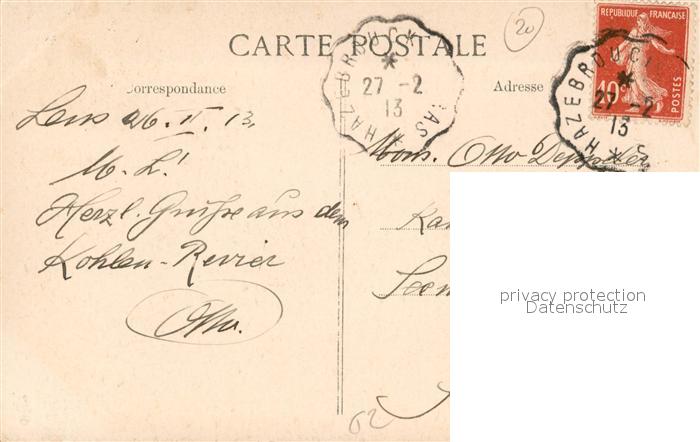 20
CARTE POSTALE
REPUBLIQUE FRANÇAISE
10c
POSTES
HAZEBROUCK
27 -2
13
HAZEBROUCK
27 -2
13
Correspondance
Adresse
Lens 26. II. 13.
M. L!
Herzl. Grüsse aus dem
Kohlen-Revier
Otto.
Mons. Otto
62
privacy protection
Datenschutz